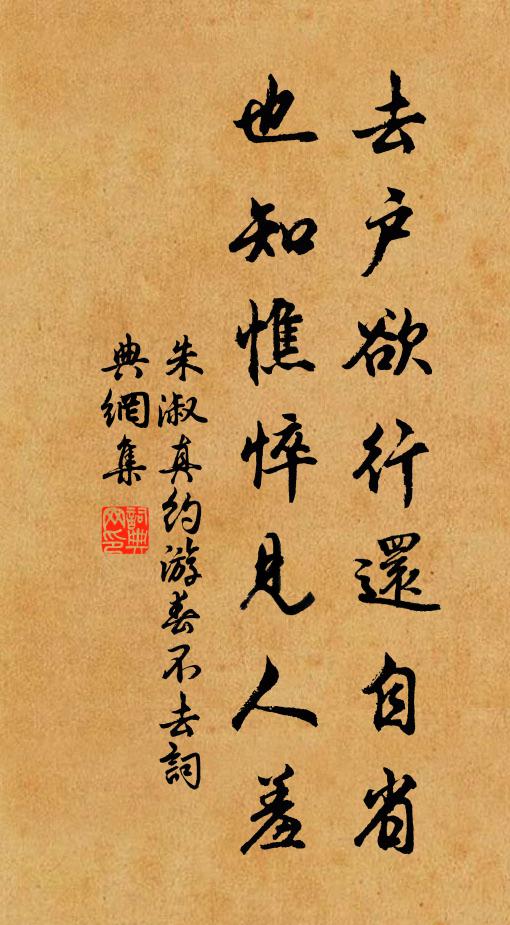 去户欲行還自省
也知憔悴見人羞
朱淑真約游春不去詞
典網集
詞典网印